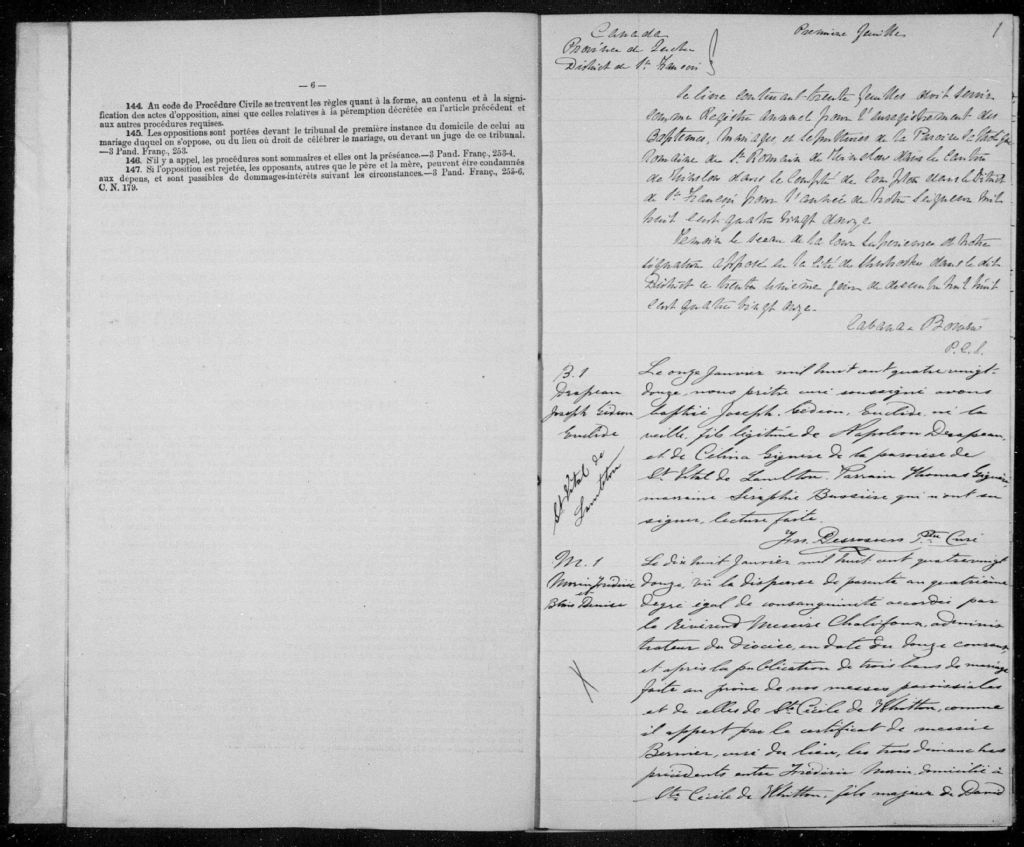 — 6 —
144. Au code de Procédure Civile se trouvent les règles quant à la forme, au contenu et à la signi-
fication des actes d'opposition, ainsi que celles relatives à la péremption décrétée en l'article précédent et
aux autres procédures requises.
145. Les oppositions sont portées devant le tribunal de première instance du domicile de celui au
mariage duquel on s'oppose, ou du lieu où droit de célébrer le mariage, ou devant un juge de ce tribunal.
—3 Pand. Franç., 253.
146. S'il y a appel, les procédures sont sommaires et elles ont la préséance.—3 Pand. Franç., 253-4.
147. Si l'opposition est rejetée, les opposants, autres que le père et la mère, peuvent être condamnés
aux dépens, et sont passibles de dommages-intérêts suivant les circonstances.—3 Pand. Franç., 253-6.
C. N. 179.
Canada
Province de Quebec
District de St Francois
Premiere feuille
1
Ce livre contenant trente feuilles doit servir
comme Registre annuel pour l'enregistrement des
Baptemes, Mariages et Sepultures de la Paroisse Catholique
Romaine de St Romain de Winslow dans le Canton
de Winslow dans le Comté de Compton dans le District
de St Francois pour l'année de Notre Seigneur mil
huit cent quatre vingt douze
Temoin le sceau de la Cour Superieure et notre
signature apposés en la Cité de Sherbrooke dans le dit
District ce trente unieme jour de decembre mil huit
cent quatre vingt onze.
Cabana & Bowen
P.C.S.
B. 1
Drapeau
Joseph Gédéon
Euclide
St Vital de
Lambton
Le onze Janvier mil huit cent quatre vingt-
douze, nous prêtre curé soussigné avons
baptisé Joseph, Gédéon, Euclide, né la
veille, fils légitime de Napoléon Drapeau,
et de Célina Gignère de la paroisse de
St. Vital de Lambton. Parrain Thomas Gignère
marraine Seraphie Bussière qui n'ont su
signer, lecture faite.
Jn. Desrosiers Ptre Curé
M. 1
Morin Frédéric
et
Blais Denise
X
Le dix huit Janvier mil huit cent quatrevingt
douze, vu la dispense de parenté au quatrième
degré égal de consanguinité accordée par
le Révérend Messire Chalifoux, adminis
trateur du diocèse, en date du douze courant,
et après la publication de trois bans de mariage
faite au prône de nos messes paroissiales
et de celles de Ste Cécile de Whitton, comme
il appert par le certificat de messire
Bernier, curé du lieu, les trois dimanches
précédents entre Frédéric Morin, domicilié à
Ste Cécile de Whitton, fils majeur de David